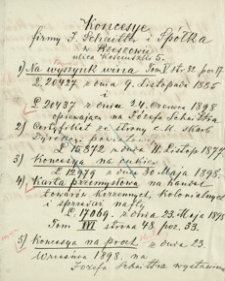 Koncesye
firmy J. Schaitter i Spółka
w Rzeszowie
ulica Kościuszki 5.
1) Na wyszynk wina Tom V st. 32. poz. 17.
L. 20427 z dnia 9. Listopada 1885
i
L. 20437 z dnia 24. Czerwca 1898
opiewająca na Józefa Schaittra
2) Certyfikat ze strony c. k. Skarb
L. 12372 z dnia 11. Listop. 1877
3) Koncesya na cukier
L. 12979 z dnia 30. Maja 1898.
4) Karta przemysłowa na handel
towarów korzennych, kolonialnych
i sprzedaż nafty
L. 17069. z dnia 23. Maja 1898
Tom VII strona 48. poz. 33.
5) Koncesya na proch z dnia 23.
Września 1898. na
Józefa Schaittra wystawiona